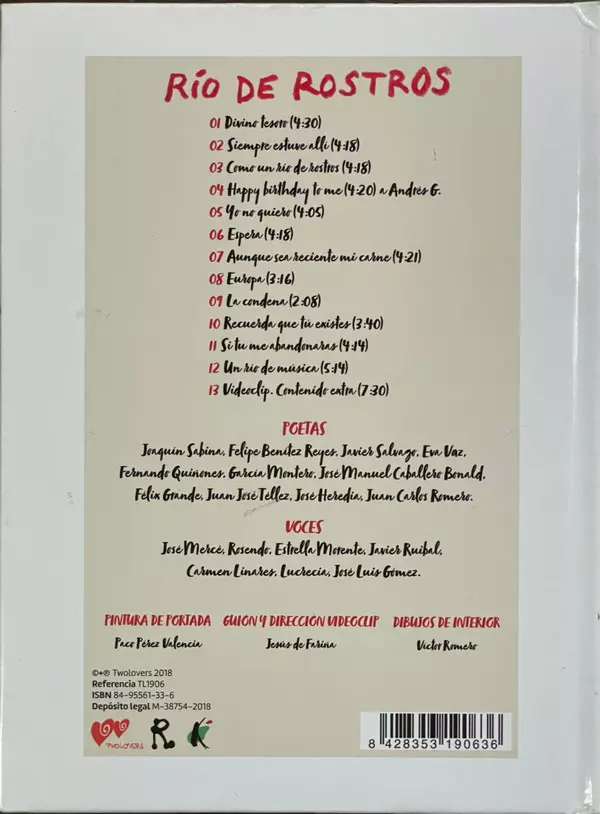 RÍO DE ROSTROS
01 Divino tesoro (4:30)
02 Siempre estuve allí (4:18)
03 Como un río de rostros (4:18)
04 Happy birthday to me (4:20) a Andrés G.
05 Yo no quiero (4:05)
06 Espera (4:18)
07 Aunque sea reciente mi carne (4:21)
08 Europa (3:16)
09 La condena (2:08)
10 Recuerda que tú existes (3:40)
11 Si tu me abandonaras (4:14)
12 Un río de música (5:14)
13 Videoclip. Contenido extra (7:30)
POETAS
Joaquín Sabina, Felipe Benítez Reyes, Javier Salvago, Eva Vaz,
Fernando Quiñones, García Montero, José Manuel Caballero Bonald,
Félix Grande, Juan José Téllez, José Heredia, Juan Carlos Romero.
VOCES
José Mercé, Rosendo, Estrella Morente, Javier Ruibal,
Carmen Linares, Lucrecia, José Luis Gómez.
PINTURA DE PORTADA GUIÓN Y DIRECCIÓN VIDEOCLIP DIBUJOS DE INTERIOR
Paco Pérez Valencia Jesús de Fariña Víctor Romero
©+℗ Twolovers 2018
Referencia TL1906
ISBN 84-95561-33-6
Depósito legal M-38754-2018
TWOLOVERS R K
8 428353 190636